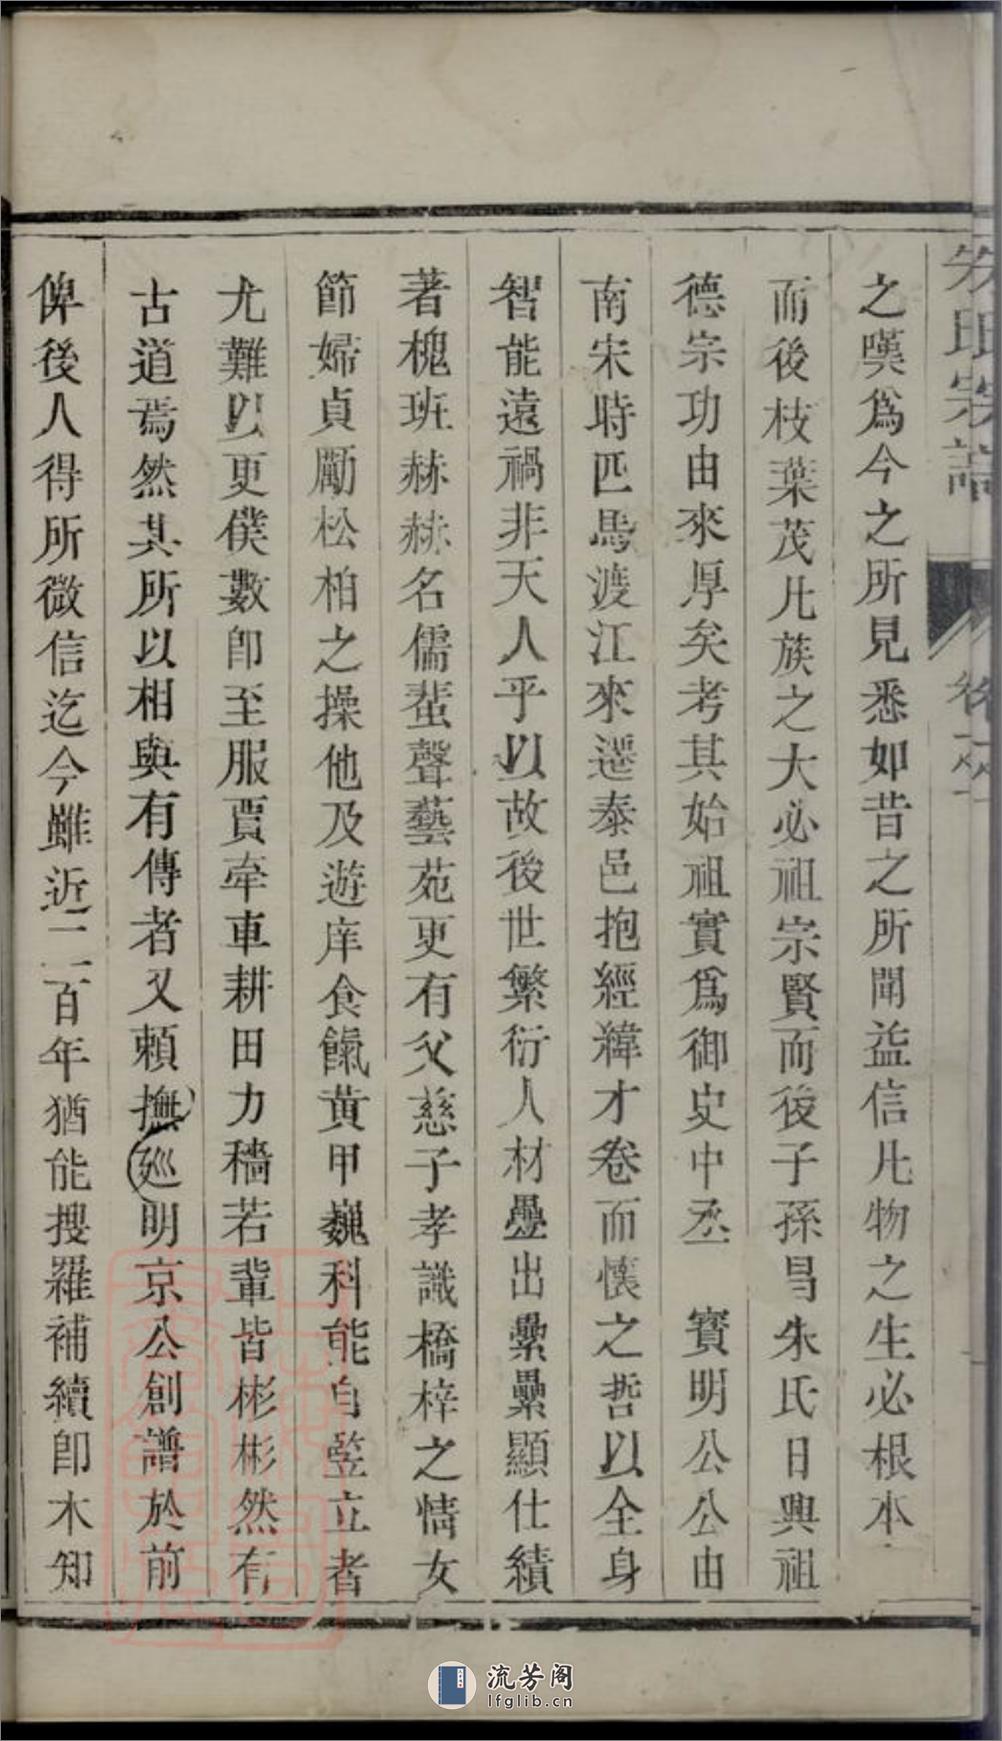 之嘆爲今之所見悉如昔之所聞益信凡物之生必根本
而後枝葉茂凡族之大必祖宗賢而後子孫昌朱氏日興祖
德宗功由來厚矣考其始祖實爲御史中丞 寳明公公由
南宋時匹馬渡江來遷泰邑抱經緯才卷而懷之哲以全身
智能遠禍非天人乎以故後世繁衍人材疊出纍纍顯仕績
著槐班赫赫名儒蜚聲藝苑更有父慈子孝識橋梓之情女
節婦貞勵松柏之操他及遊庠食餼黃甲巍科能自竪立者
尤難以更僕數卽至服賈牽車耕田力穡若輩皆彬彬然有
古道焉然其所以相與有傳者又賴撫巡明京公創譜於前
俾後人得所徵信迄今雖近二百年猶能搜羅補續卽木知
流芳阁
lfglib.cn